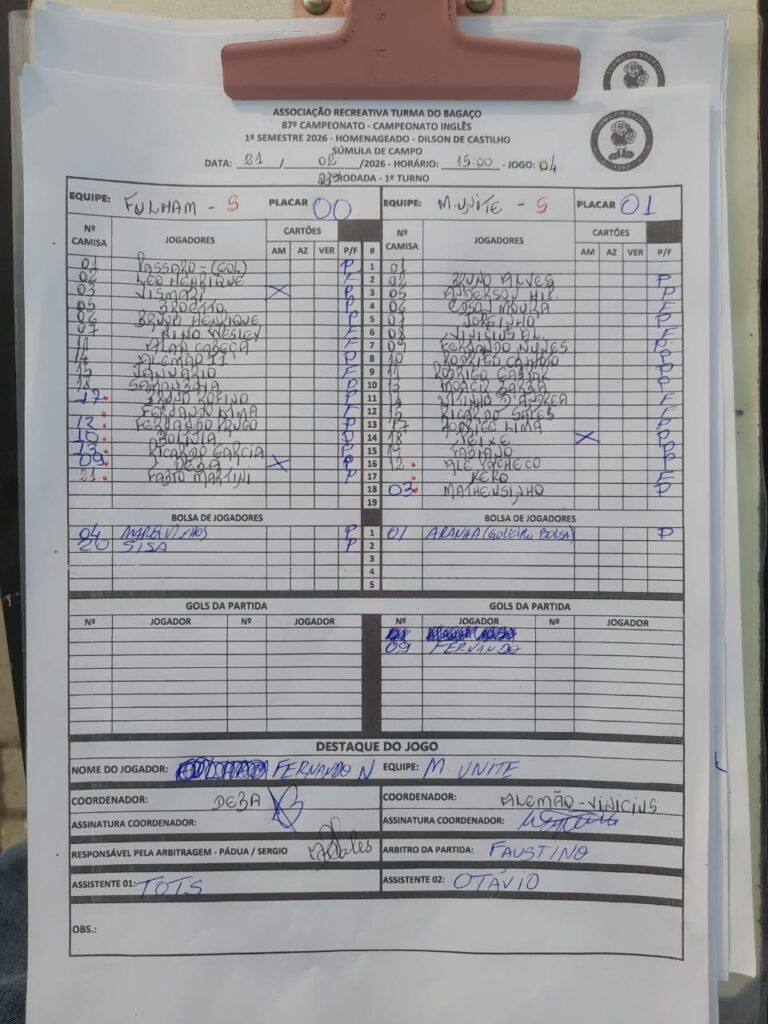 ASSOCIAÇÃO RECREATIVA TURMA DO BAGAÇO
87º CAMPEONATO - CAMPEONATO INGLÊS
1º SEMESTRE 2026 - HOMENAGEADO - DILSON DE CASTILHO
SÚMULA DE CAMPO
DATA: 21 / 02 /2026 - HORÁRIO: 15:00 - JOGO: 04
RODADA - 1º TURNO
EQUIPE: FULHAM - S PLACAR 00 EQUIPE: M. UNITE - S PLACAR 01
Nº CAMISA JOGADORES CARTÕES AM AZ VER P/F # Nº CAMISA JOGADORES CARTÕES AM AZ VER P/F
01 PASSARO - (GOL) P 1 01
02 LEO HENRIQUE F 2 02 BRUNO ALVES P
03 VISMARI X P 3 05 ANDERSON P
05 P 4 06 EDSON MOURA F
06 BRUNO HENRIQUE P 5 07 JORGINHO
07 NINO WESLEY F 6 08 VINICIUS AL.
11 ALAN CABEÇA F 7 09 FERNANDO NUNES
14 ALEMÃO II P 8 10 RODRIGO
15 JANUARIO F 9 11 RODRIGO
18 P 10 13 MOACIR
17 F 11 14 D'ANDREA F
FERNANDO LIMA F 12 15 RICARDO SALES
12 FERNANDO P 13 17 RODRIGO LIMA
10 BOLIVIA 14 18 PEIXE X
13 RICARDO GARCIA P 15 19 FABIANO
09 DEBA X P 16 12 ALE PACHECO
21 FABIO MARTINI P 17 KEKO F
18 03 MATHEUSINHO P
19
BOLSA DE JOGADORES BOLSA DE JOGADORES
04 MARQUINHOS P 1 01 ARANHA (GOLEIRO BOLSA) P
20 SISA P 2
3
4
5
GOLS DA PARTIDA GOLS DA PARTIDA
Nº JOGADOR Nº JOGADOR Nº JOGADOR Nº JOGADOR
09 FERNANDO
DESTAQUE DO JOGO
NOME DO JOGADOR: FERNANDO N EQUIPE: M. UNITE
COORDENADOR: DEBA COORDENADOR: ALEMÃO - VINICIUS
ASSINATURA COORDENADOR: ASSINATURA COORDENADOR:
RESPONSÁVEL PELA ARBITRAGEM - PÁDUA / SERGIO ARBITRO DA PARTIDA: FAUSTINO
ASSISTENTE 01: TOTS ASSISTENTE 02: OTÁVIO
OBS.: